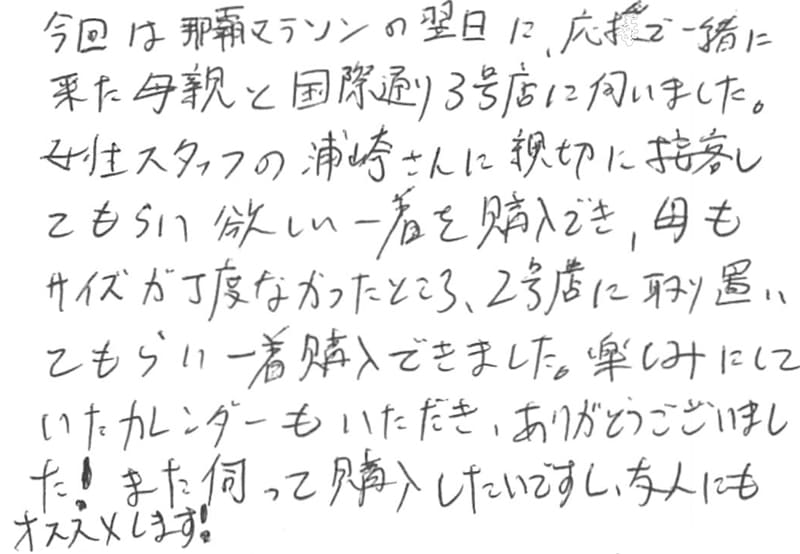 今回は那覇マラソンの翌日に、応援で一緒に
来た母親と国際通り3号店に伺いました。
女性スタッフの浦崎さんに親切に接客し
てもらい欲しい一着を購入でき、母も
サイズが丁度なかったところ、2号店に取り置い
てもらい一着購入できました。楽しみにして
いたカレンダーもいただき、ありがとうございまし
た!また伺って購入したいですし、友人にも
オススメします!